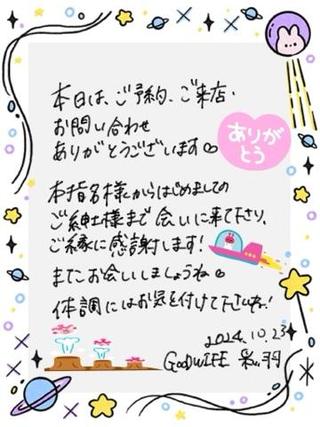 本日は、ご予約、ご来店・
お問い合わせ
ありがとうございます
ありが
とう
本指名様からはじめましての
ご紳士様まで会いに来て下さり、
ご縁に感謝します!
またお会いしましょうね
体調にはお気を付けて下さいね!
2024.10.23
GOODWIFE